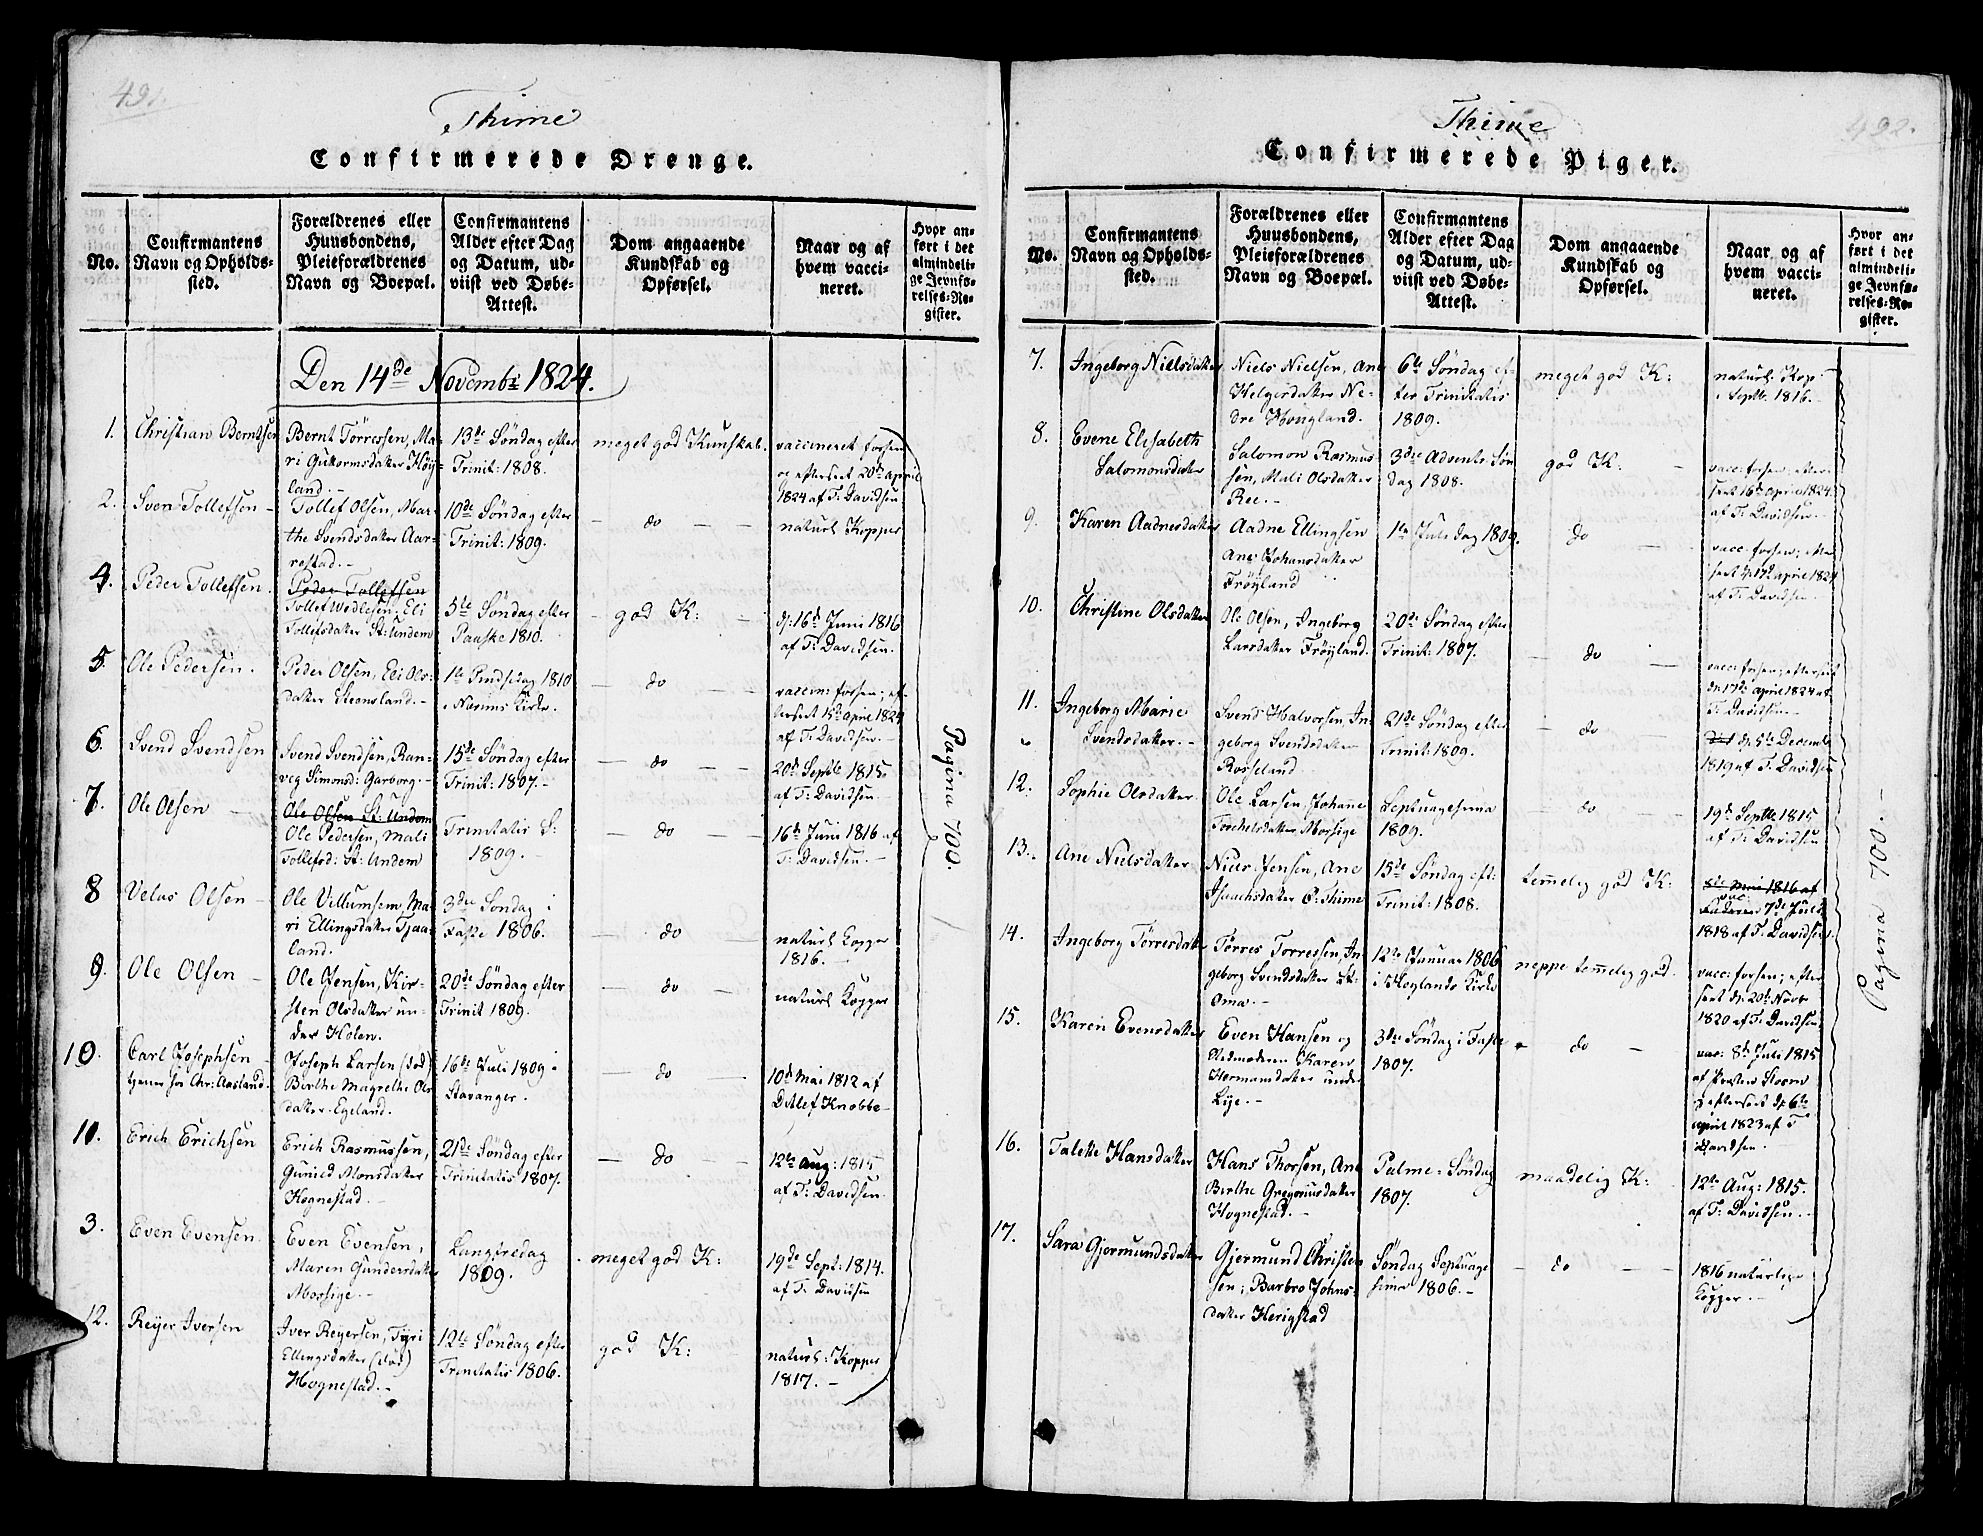 491.
Thime
Confirmerede Drenge.
No.
Confirmantens
Navn og Opholds-
sted.
Forældrenes eller
Huusbondens,
Pleieforældrenes
Navn og Boepæl.
Confirmantens
Alder efter Dag
og Datum, ud-
viist ved Døbe-
Attest.
Dom angaaende
Kundskab og
Opførsel.
Naar og af
hvem vacci-
neret.
Hvor an-
ført i det
almindeli-
ge Jevnfø-
relses-Re-
gister.
Den 14de Novembr 1824.
1.
Christian Berntsen
Bernt Törressen, Ma-
ri Guttormsdatter Höy-
land.-
13de Söndag efter
Trinit: 1808.
meget god Kunskab.
vaccineret forsen
og efterseet 20de april
1824 af T: Davidsen
2.
Sven Tollefsen -
Tollef Olsen, Mar-
the Svendsdatter Aar-
restad.-
10de Söndag efter
Trinit: 1809.
- do - -
naturl Kopper
4.
Peder Tollefsen.
Peder Tollefsen
Tollef Wedlesen, Eli
Tollefsdatter St: Undem
5te Söndag efter
Paaske 1810.
- god K: -
d: 16de Juni 1816
af T: Davidsen.
5
Ole Pedersen.
Peder Olsen, Eli Ols-
datter Steensland.-
1te Pindsedag 1810
i Nærims Kirke.
- do - -
vaccin: forsen; ef-
terseet 15de april 1824
af T: Davidsen.-
6.
Svend Svendsen
Svend Svendsen, Ran-
veg Simonsd: Garborg.-
15de Söndag efter
Trinit: 1807.-
- do - -
20de Septb 1815
af T: Davidsen
7.
Ole Olsen -
Ole Olsen St: Undem
Ole Pedersen, Mali
Tollefsd: St: Undem
Trinitatis S:
1809.-
- do -
16de Juni 1816 af
T: Davidsen.-
8
Velas Olsen -
Ole Villumsen, Ma-
ri Ellingsdatter Tjaa-
land.
3die Söndag i
Faste 1806.
- do -
naturl Kopper
1816.-
9.
Ole Olsen -
Ole Jensen, Kir-
sten Olsdatter un-
der Holen.
20de Söndag efter
Trinit 1809.
- do -
naturl Kopper
10.
Carl Josephsen -
tjener hos Chr: Aasland.
Joseph Larsen (död)
Birthe Magrethe Ols-
datter Egeland.
16de Juli 1809 i
Stavanger.
- do -
10d Mai 1812 af
Ditlef Knobbe-
11.
Erich Erichsen
Erich Rasmussen,
Gunild Monsdatter
Hognestad.-
21de Söndag efter
Trinitatis 1807.
- do -
12te Aug: 1815
af T: Davidsen.
3.
Even Evensen.
Even Evensen,
Maren Gundersdatter
Mossige.-
Langfredag
1809.
meget god K:
19de Sept: 1814.
af T: Davidsen
12.
Reyer Iversen
Iver Reyersen, Tyri
Ellingsdatter (död)
Hognestad.-
12te Söndag efter
Trinitatis 1806.
god K: -
naturl: Kopper
1817.-
Pagina 700.
492.
Thime
Confirmerede Piger.
No.
Confirmantens
Navn og Opholds-
sted.
Forældrenes eller
Huusbondens,
Pleieforældrenes
Navn og Boepæl.
Confirmantens
Alder efter Dag
og Datum, ud-
viist ved Døbe-
Attest.
Dom angaaende
Kundskab og
Opførsel.
Naar og af
hvem vacci-
neret.
Hvor an-
ført i det
almindeli-
ge Jevnfø-
relses-Re-
gister.
7.
Ingeborg Nielsdatter
Niels Nielsen, Ane
Helgesdatter Ne-
dre Hougland.
6te Söndag ef-
ter Trinitatis
1809.
meget god K:
naturl: Kop:
i Septb. 1816.-
8.
Evene Elisabeth
Salomonsdatter
Salomon Rasmus-
sen, Mali Olsdatter
Ree.-
3die Advents Sön-
dag 1808.
god K: -
vacc: forsen; efter-
seet 16de april 1824.
af T: Davidsen.-
9.
Karen Aadnesdatter
Aadne Ellingsen
Ane Johansdatter
Fröyland
1te Juledag 1809.
do -
vacc: forsen; efter
seet d: 17de april 1824
af T: Davidsen.
10.
Christine Olsdatter
Ole Olsen, Ingeborg
Larsdatter Fröyland.
20de Söndag efter
Trinit: 1807.
- do -
vacc: forsen; efterseet
d: 17de april 1824 af
T: Davidsen-
11.
Ingeborg Marie
Svendsdatter.-
Svend Halvorsen, In-
geborg Svendsdatter
Rosseland.
21de Söndag efter
Trinit: 1809.
- do
d: 5te Decemb
1819 af T: Davidsen
12.
Sophie Olsdatter
Ole Larsen, Johane
Torchelsdatter, Mossige
Septuagesima
1809.
- do -
19d: Septb 1815
af T: Davidsen
13.
Ane Nielsdatter
Niels Jensen, Ane
Isaachsdatter Ö: Thime
15de Söndag eft:
Trinit: 1808.
temelig god K:
7de Juli
1818 af T: Davidsen
14.
Ingeborg Törresdatter
Törres Torressen, In-
geborg Svendsdatter St:
Oma.-
12te Januar 1806
i Höylands Kirke
neppe temelig god.
vacc: forsen; efter
seet d: 20de Novb
1820 af T: Davidsen
15.
Karen Evensdatter
Even Hansen og
Stedmoderen Karen
Hermansdatter under
Lye.-
3die Söndag i Faste
1807.
do -
vac: 8de Juli 1815
af Præsten Storm
efterseet d: 6te
april 1823 af T
Davidsen.
16.
Talette Hansdatter
Hans Thorsen, Ane
Birthe Gregoriusdatter
Hognestad.-
Palme-Söndag
1807.
maadelig K:
12te Aug: 1815.
af T: Davidsen.-
17.
Sara Gjermundsdatter
Gjermund Christen-
sen, Barbro Johns-
datter Herigstad
Söndag Septuage
sima 1806.-
- do - -
1816 naturlige
Kopper.-
Pagina 700.-